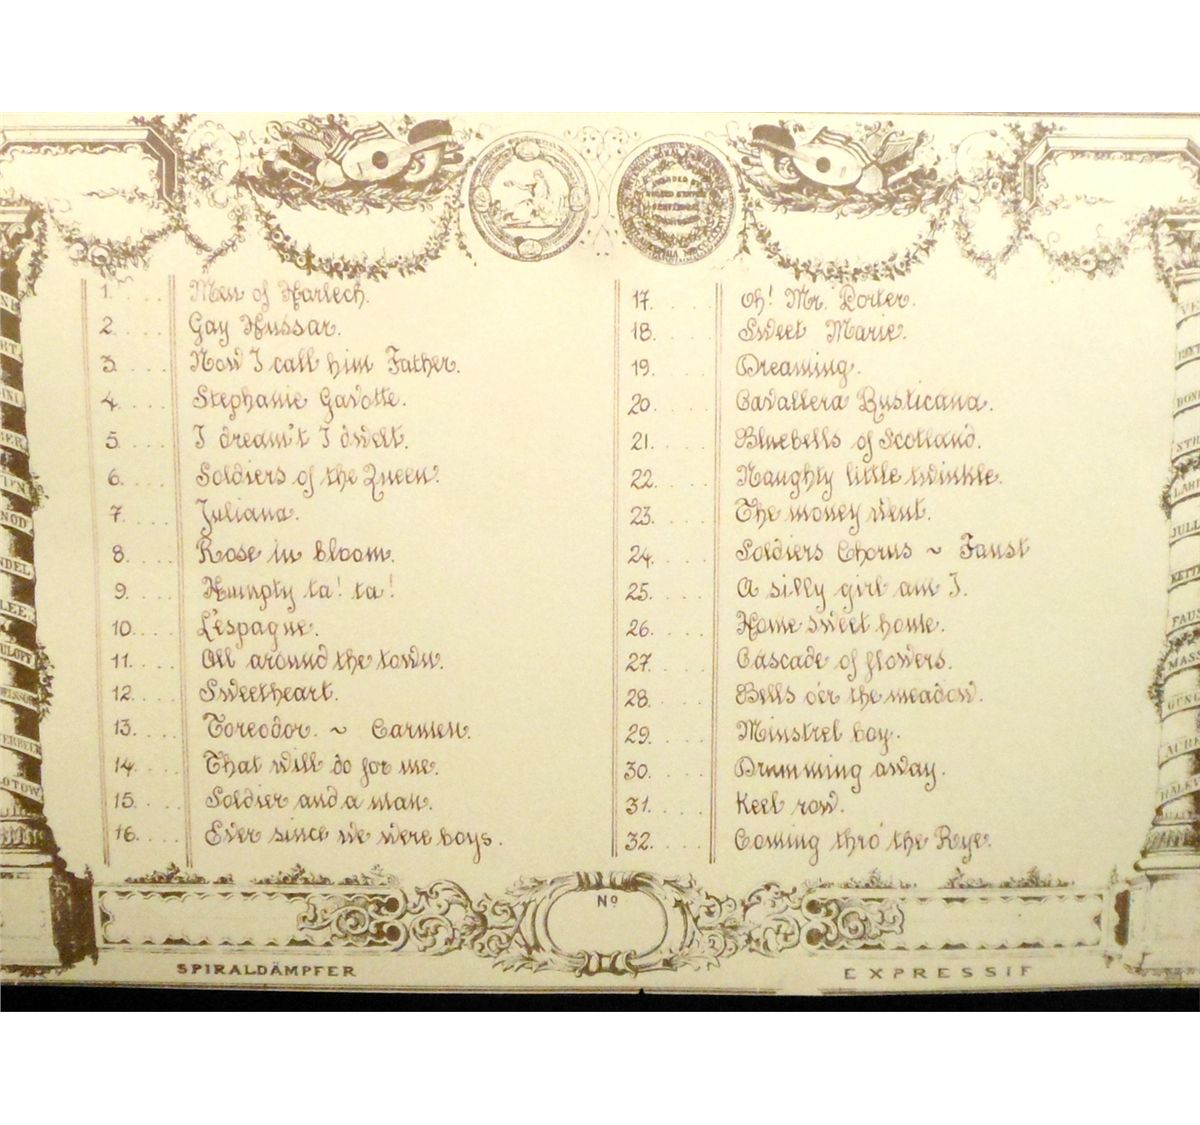 1. .... Men of Harlech.
2. .... Gay Hussar.
3. .... Now I call him Father.
4. .... Stephanie Gavotte.
5. .... I dream't I dwelt.
6. .... Soldiers of the Queen.
7. .... Juliana.
8. .... Rose in bloom.
9. .... Humpty ta! ta!
10. .... L'espagne.
11. .... All around the town.
12. .... Sweetheart.
13. .... Toreodor. ~ Carmen.
14. .... That will do for me.
15. .... Soldier and a man.
16. .... Ever since we were boys.
17. .... Oh! Mr. Porter.
18. .... Sweet Marie.
19. .... Dreaming.
20. .... Cavallera Rusticana.
21. .... Bluebells of Scotland.
22. .... Naughty little twinkle.
23. .... The money went.
24. .... Soldiers Chorus ~ Faust
25. .... A silly girl am I.
26. .... Home sweet home.
27. .... Cascade of flowers.
28. .... Bells o'er the meadow.
29. .... Minstrel boy.
30. .... Drumming away.
31. .... Keel row.
32. .... Coming thro' the Rye.
Nº
SPIRALDÄMPFER
EXPRESSIF